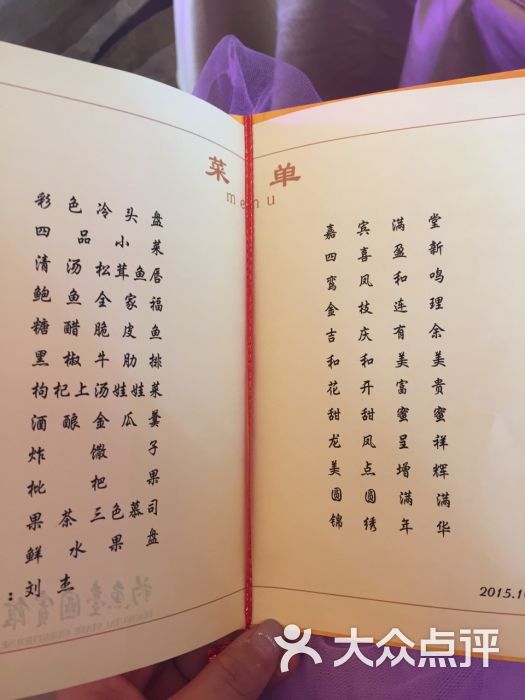 菜单
menu
彩色冷头盘
四品小菜
清汤松茸鱼唇
鲍鱼全家福
糖醋脆皮鱼
黑椒牛肋排
枸杞上汤娃娃菜
酒酿金瓜羹
炸馓子
枇杷果
果茶三色慕司
鲜水果盘
:刘杰
钓鱼台国宾馆
嘉宾满堂
四喜盈新
鸾凤和鸣
金枝连理
吉庆有余
和和美美
花开富贵
甜甜蜜蜜
龙凤呈祥
美点增辉
圆圆满满
锦绣年华
2015.1
大众点评